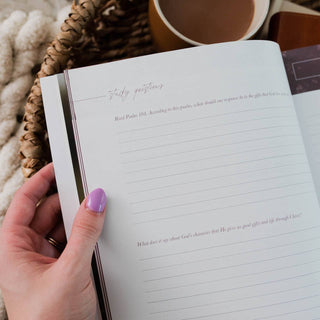 study questions
Read Psalm 103. According to this psalm, what should our response be to the gifts that God
What does it say about God's character that He gives us good gifts and life through Christ?